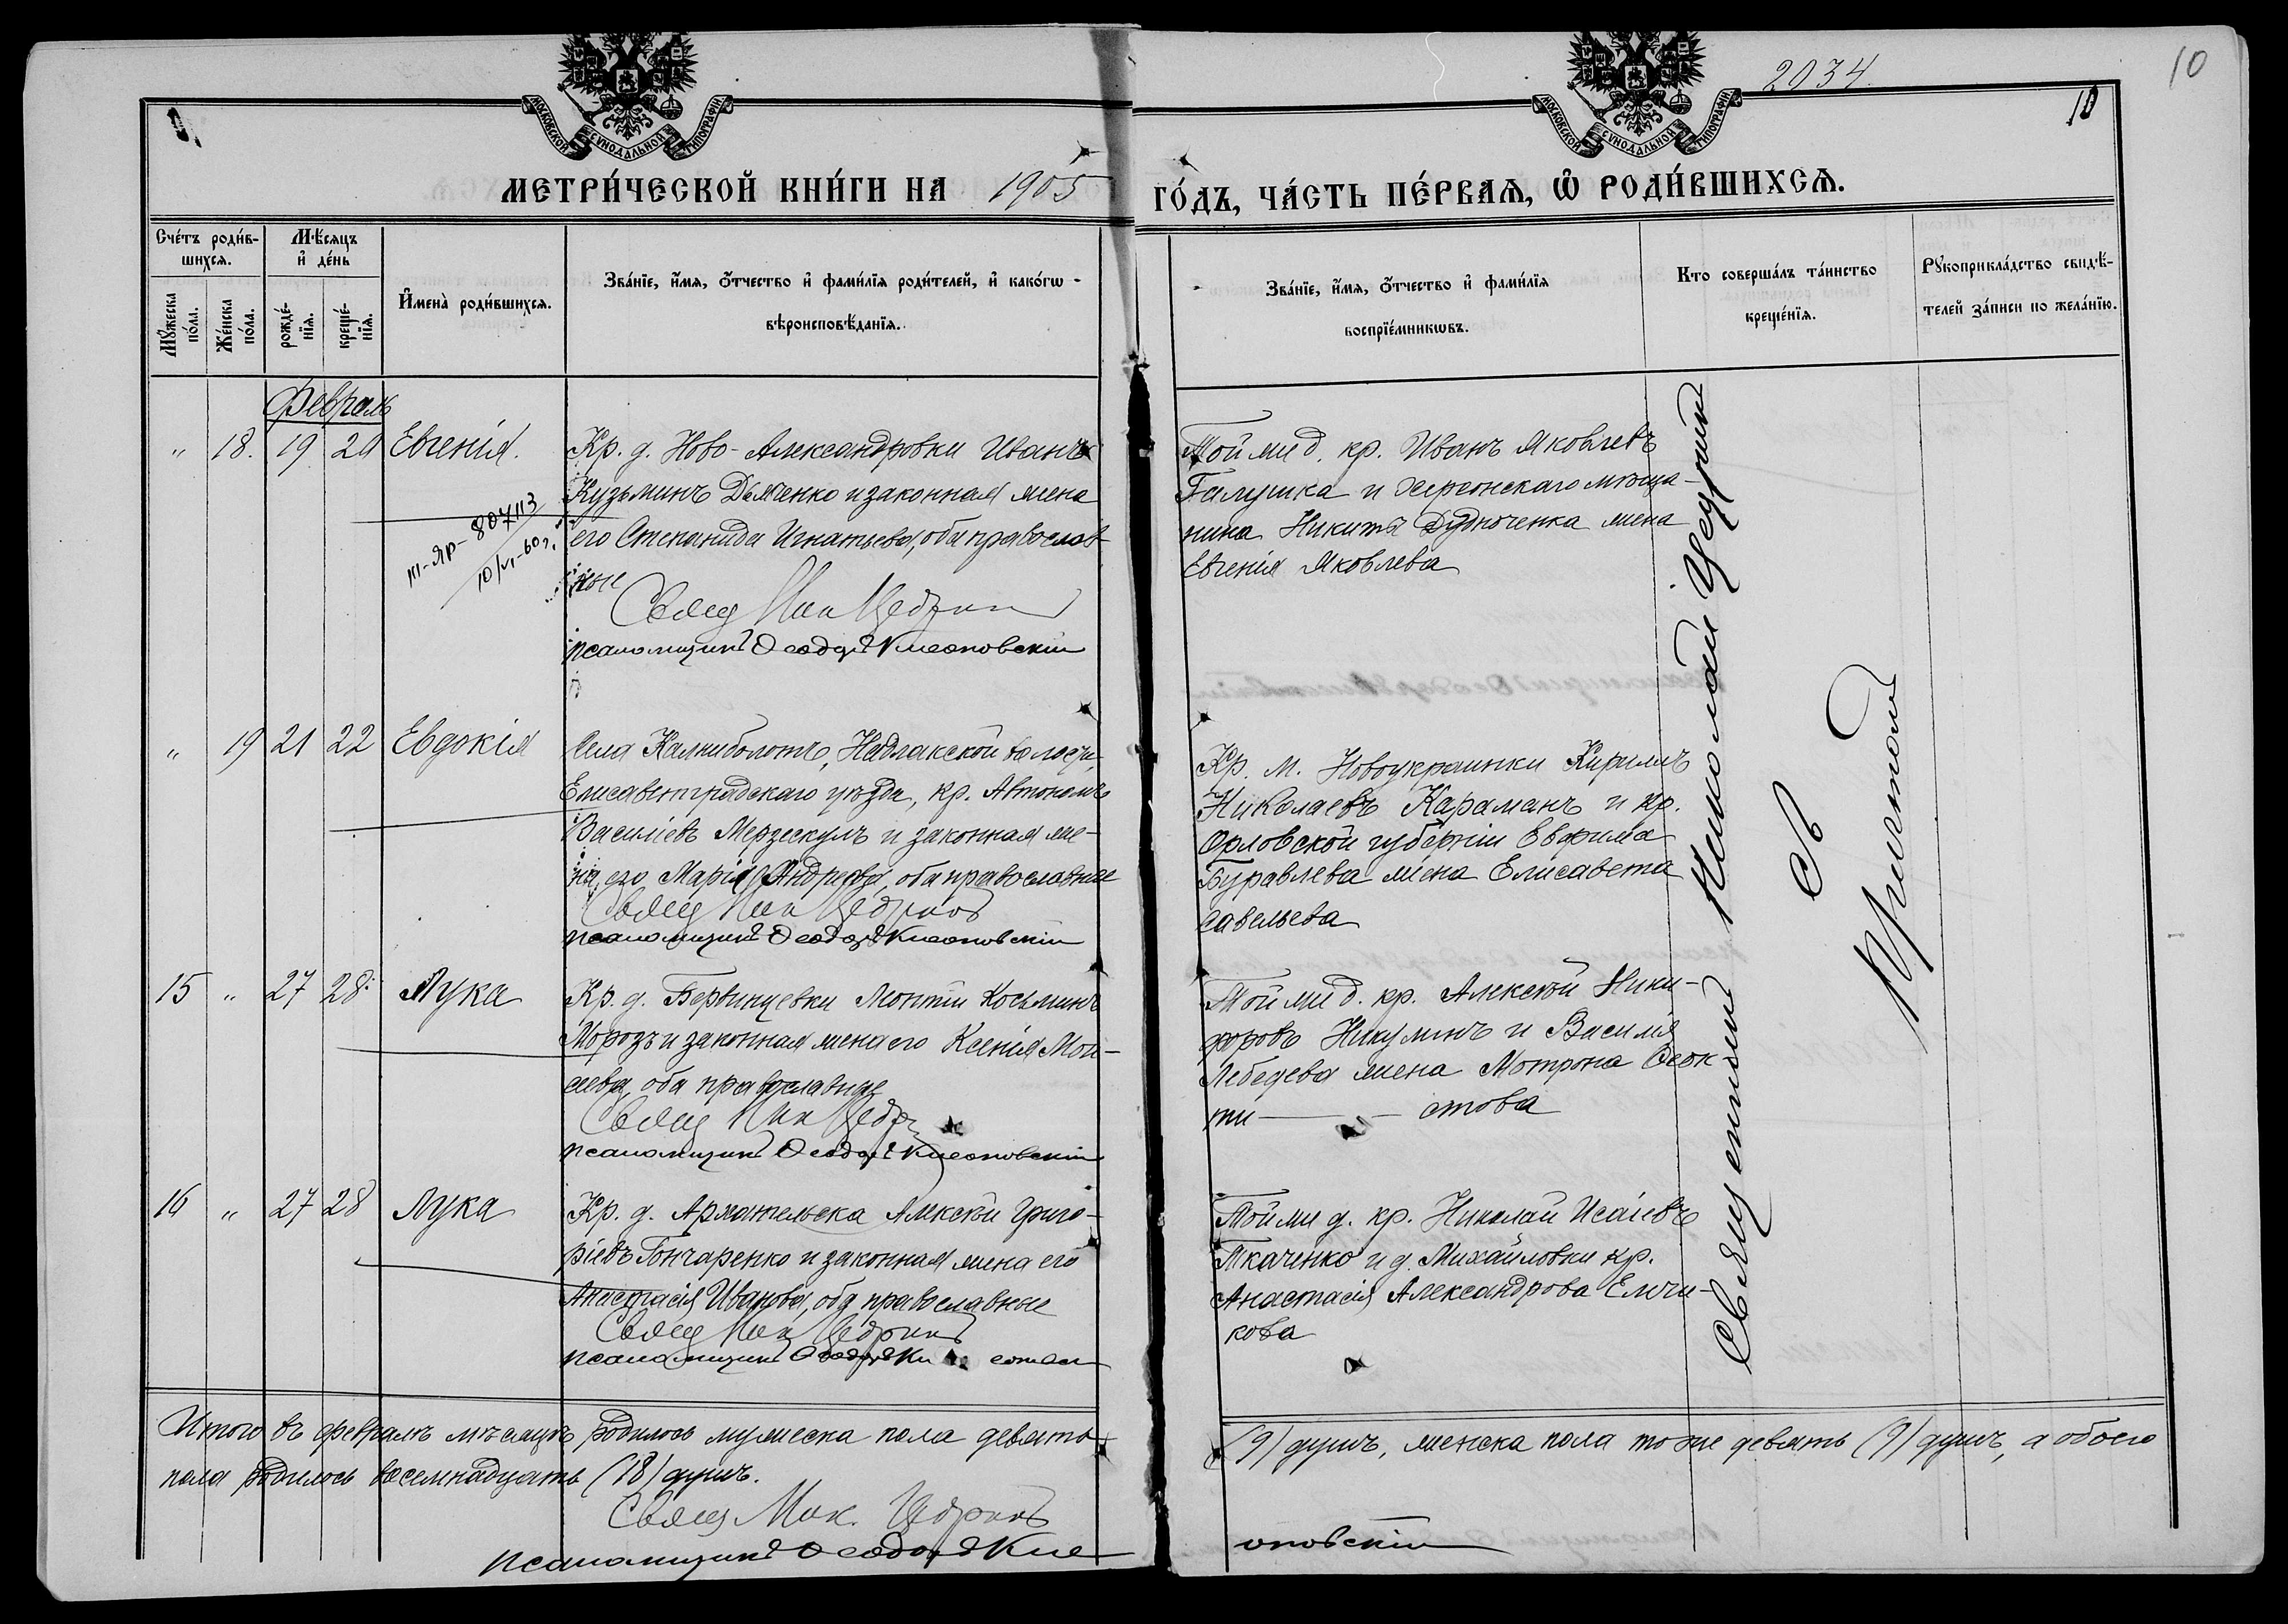 10
2034.
10
МОСКОВСКОЙ СѴНОДАЛЬНОЙ ТИПОГРАФІИ
МОСКОВСКОЙ СѴНОДАЛЬНОЙ ТИПОГРАФІИ
МЕТРИ́ЧЕСКОЙ КНИ́ГИ НА 1905 ГО́ДЪ, ЧА́СТЬ ПЕ́РВАЯ, Ѡ РОДИ́ВШИХСѦ.
Сче́тъ роди́в-
шихся.
Мѣ́сяцъ
и҆ де́нь
Мꙋ́жеска
по́ла.
Же́нска
по́ла.
рожде́-
нїя.
креще́-
нїя.
И҆мена̀ роди́вшихся.
Зва́нїе, и҆́мя, ѻ҆́тчество и҆ фами́лїя роди́телей, и҆ како́гѡ
вѣроисповѣ́данїя.
Зва́нїе, и҆́мя, ѻ҆́тчество и҆ фами́лїя
воспрїе́мникѡвъ.
Кто соверша́лъ та́инство
креще́нїя.
Рꙋкоприкла́дство свидѣ́-
телей за́писи по жела́нїю.
Февраль
" 18. 19 20 Евгенія.
Кр. д. Ново-Александровки Иванъ
Кузьминъ Дьяченко и законная жена
его Степанида Игнатьева, оба православ-
ные
III-ЯР- 807113
10/VI-60 г.
Свящ Ник Цедрин
псаломщикъ Ѳеодоръ
Той же д. кр. Иванъ Яковлевъ
Галушка и херсонскаго мѣща-
нина Никиты Дудниченка жена
Евгенія Яковлева
" 19 21 22 Евдокія
Села Калниболотъ, Надлакской волости,
Елисаветградскаго уѣзда, кр. Автономъ
Василіевъ Мерзескулъ и законная же-
на его Марія Андреева, оба православные
Свящ Ник Цедринъ
псаломщикъ Ѳеодоръ
Кр. м. Новоукраинки Кириллъ
Николаевъ Караманъ и кр.
Орловской губерніи Евфима
Буравлева жена Елисавета
Савельева
15 " 27 28. Лука
Кр. д. Бервинцевки Козьминъ
Морозъ и законная жена его Ксенія Мои-
сеева, оба православные
Свящ Ник Цедр
псаломщикъ Ѳеодоръ
Той же д. кр. Алексѣй Ники-
форовъ Никулинъ и Василія
Лебедева жена Мотрона Ѳеок
ти — стова
16 " 27 28 Лука
Кр. д. Архангельска Алексѣй Григо-
ріевъ Гончаренко и законная жена его
Анастасія Иванова, оба православные
Свящ Ник Цедринъ
псаломщикъ Ѳеодоръ
Той же д. кр. Николай Исаіевъ
Ткаченко и д. Михайловки кр.
Анастасія Александрова Елчи-
кова
Священникъ Николай Цедринъ
Съ
Причтомъ
Итого въ февралѣ мѣсяцѣ родилось мужеска пола девять (9) душъ, женска пола тоже девять (9) душъ, а обоего
пола родилось восемнадцать (18) душъ.
Свящ Ник. Цедринъ
псаломщикъ Ѳеодоръ